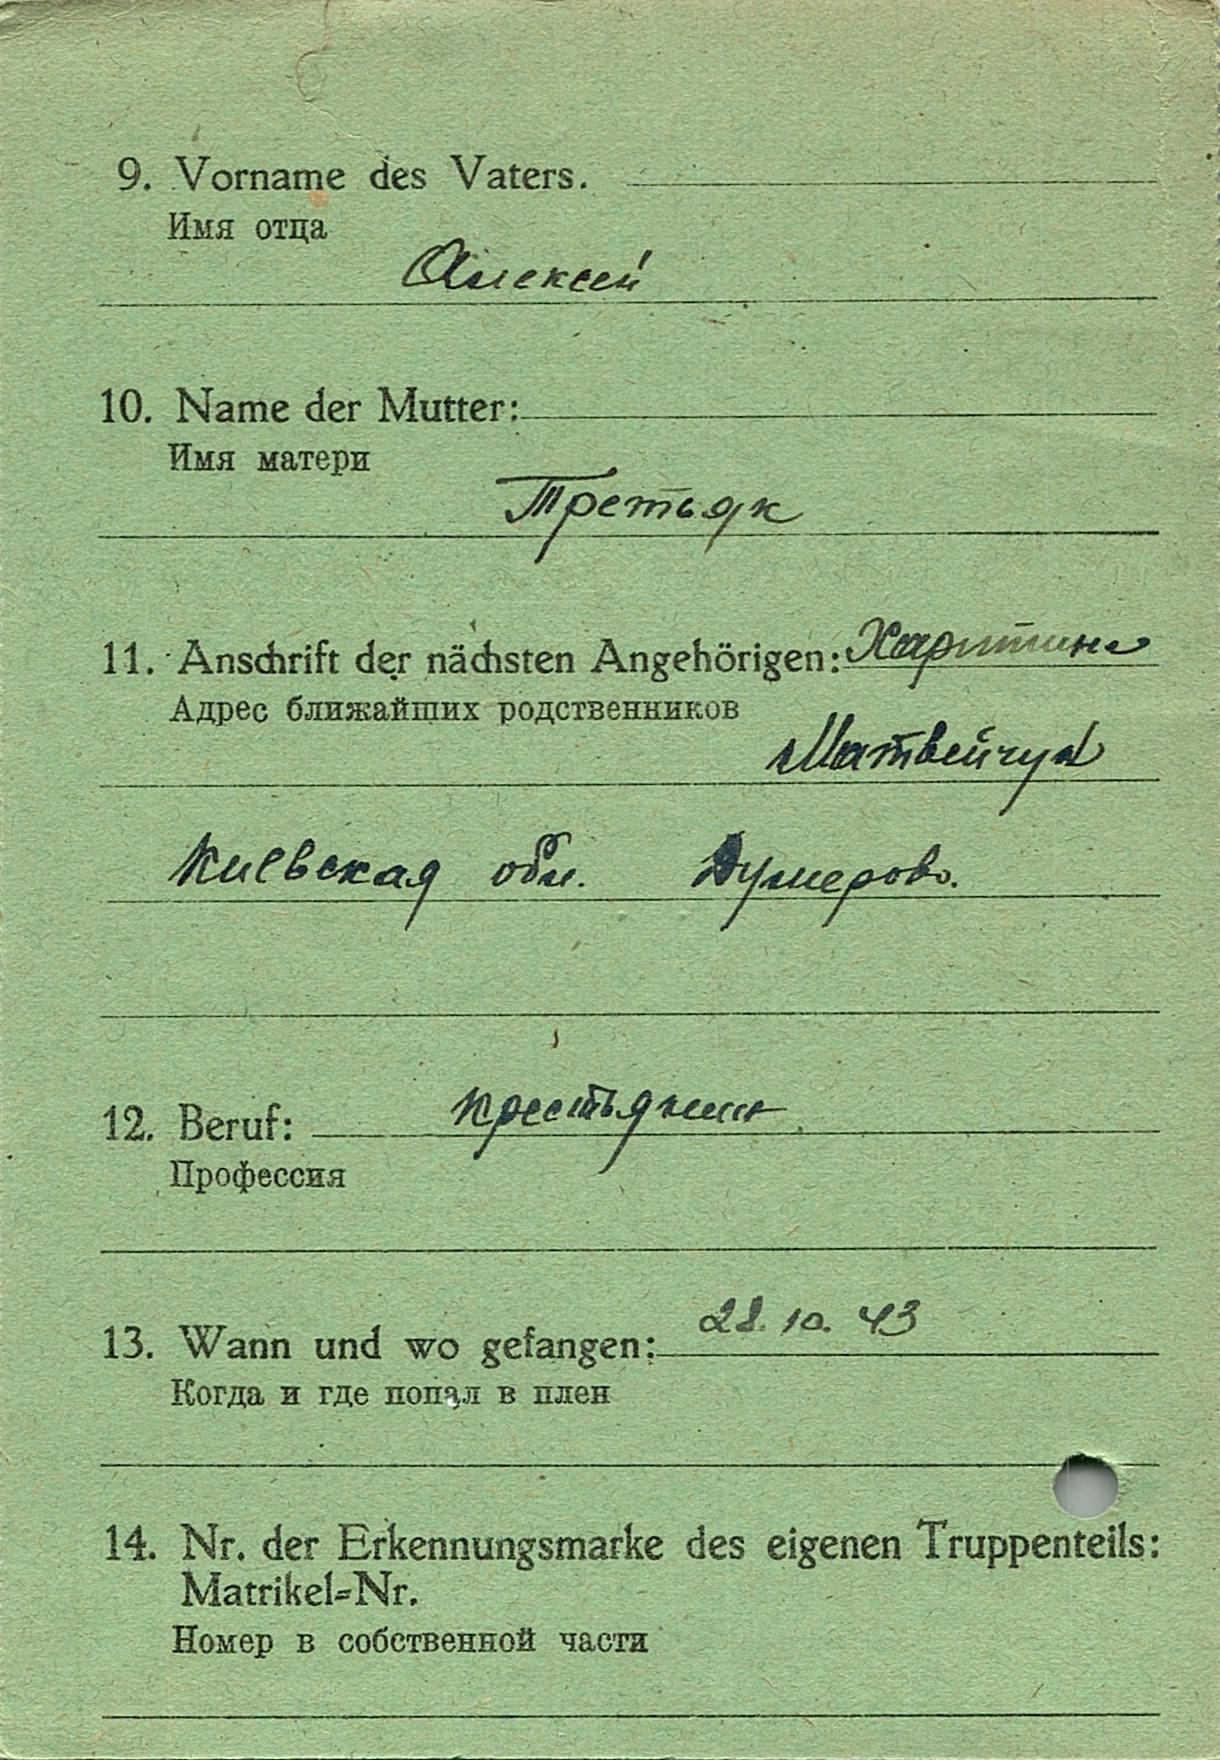 9. Vorname des Vaters.
Имя отца
Алексей
10. Name der Mutter:
Имя матери
Третьяк
11. Anschrift der nächsten Angehörigen: Харитина
Адрес ближайших родственников
Матвейчук
Киевская обл. Дымерово.
12. Beruf: крестьянин
Профессия
13. Wann und wo gefangen: 28. 10. 43
Когда и где попал в плен
14. Nr. der Erkennungsmarke des eigenen Truppenteils:
Matrikel-Nr.
Номер в собственной части